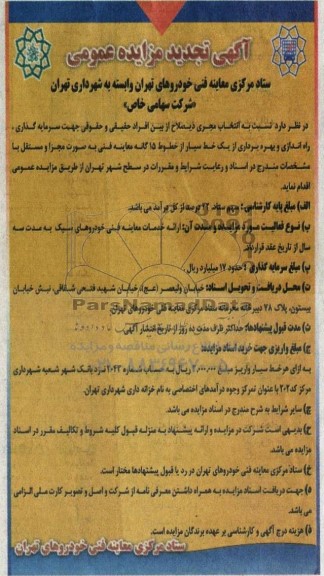 آگهی تجدید مزایده عمومی
ستاد مرکزی معاینه فنی خودروهای تهران وابسته به شهرداری تهران
«شرکت سهامی خاص»
در نظر دارد نسبت به انتخاب مجری ذیصلاح از بین افراد حقیقی و حقوقی جهت سرمایه گذاری ،
راه اندازی و بهره برداری از یک خط سیار از خطوط ۱۵ گانه معاینه فنی به صورت مجزا و مستقل با
مشخصات مندرج در اسناد و رعایت شرایط و مقررات در سطح شهر تهران از طریق مزایده عمومی
اقدام نماید.
الف) مبلغ پایه کارشناسی : سهم ستاد ۹۳ درصد از کل درآمد می باشد.
ب) نوع فعالیت مورد مزایده و مدت آن: ارائه خدمات معاینه فنی خودروهای سبک به مدت سه
سال از تاریخ عقد قرارداد.
پ) مبلغ سرمایه گذاری : حدود ۱۷ میلیارد ریال
ت) محل دریافت و تحویل اسناد: خیابان ولیعصر (عج)، خیابان شهید فتحی شقاقی، نبش خیابان
بیستون، پلاک ۲۸ دبیرخانه محرمانه ستاد مرکزی معاینه فنی خودروهای تهران
ث) مدت قبول پیشنهادها: حداکثر ظرف مدت ده روز از تاریخ انتشار آگهی.
ج) مبلغ واریزی جهت خرید اسناد مزایده:
به ازای هر خط سیار واریز مبلغ ریال به حساب شماره نزد بانک شهر شعبه شهرداری
مرکز کد۲۰۲ با عنوان تمرکز وجوه درآمدهای اختصاصی به نام خزانه داری شهرداری تهران.
چ) سایر شرایط به شرح مندرج در اسناد مزایده می باشد.
ح) بدیهی است شرکت در مزایده و ارائه پیشنهاد به منزله قبول کلیه شروط و تکالیف مقرر در اسناد
مزایده می باشد.
خ) ستاد مرکزی معاینه فنی خودروهای تهران در رد یا قبول پیشنهادها مختار است.
د) جهت دریافت اسناد مزایده به همراه داشتن معرفی نامه از شرکت و اصل و تصویر کارت ملی الزامی
می باشد.
ذ) هزینه درج آگهی و کارشناسی بر عهده برندگان مزایده است.
ستاد مرکزی معاینه فنی خودروهای تهران
ParsNamadData